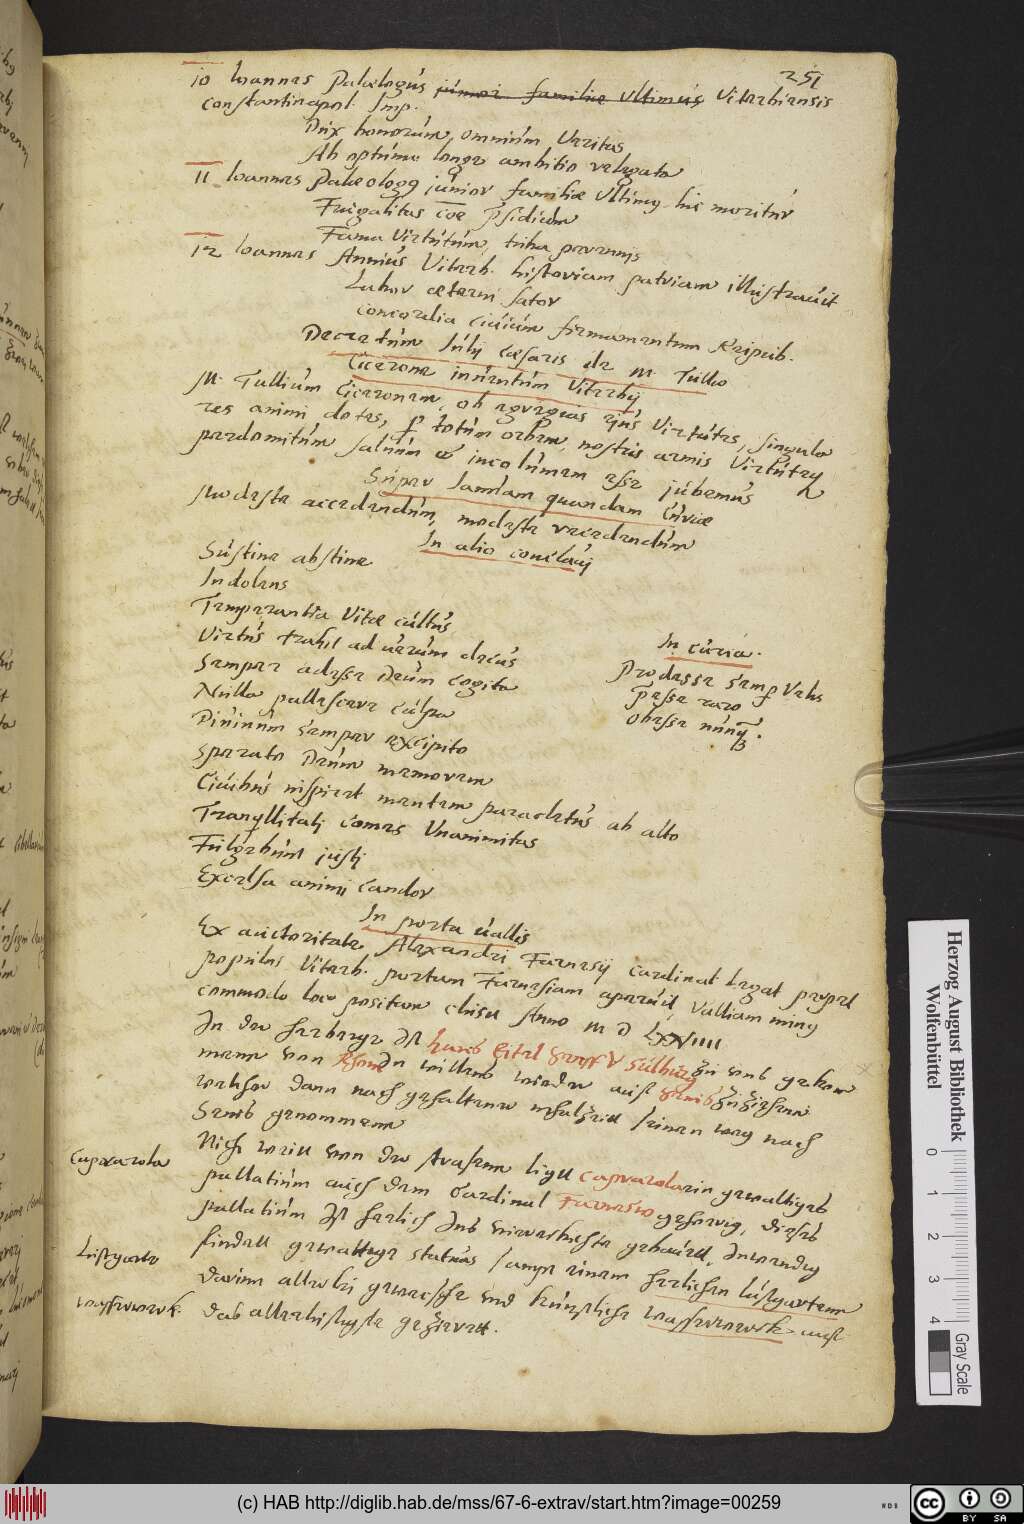 251
10 Ioannes Palælogus junior familiæ ultimus Viterbiensis
Constantinopol. Imp.
Dux bonorum omnium Veritas
Ab optimu longe ambitio relegata
11 Ioannes Palæologus junior familiæ ultimus hic moritur
Frugalitas præsidium
Fama Virtutum, tuba perennis
12 Ioannes Annius Viterb. historiam patriam illustravit
Labor æterni sator
Concordia civium firmamentum Reipub.
Decretum Iulij Cæsaris de M. Tullio
Cicerone inventum Viterbij
M. Tullium Ciceronem, ob egregias ejus Virtutes, singula
res animi dotes, per totum orbem, nostris armis Virtuteq
perdomitum salvum et incolumem esse jubemus
Super Ianuam quandam Curiæ
Modeste accedendum, modeste recedendum
In alio conclavi
Sustine abstine
Indolens
Temperantia Vitæ cultus
Virtus trahit ad verum decus
Semper adesse Deum cogita
Nulla pallescere culpa
Divinum semper excipito
Sperato Deum memorem
Civibus inspiret mentem paracletus ab alto
Tranquillitati comes Unanimitas
Fulgebunt justi
Excelsa animi candor
In curia.
Prodesse semper Velis
Præesse raro
Obesse nunquam.
In porta vallis
Ex auctoritate Alexandri Farnesij Cardinal Legat perpet
populus Viterb. portam Farnesiam aperuit, Valliam minus
commodo loco positam clusit Anno M D LXVIIII
In der herberge ist Hans Eitel Graff V Sulburg zu uns gekom
menn von Rhom In willens wieder auff Senis zuziehenn
welcher dann nach gehaltener mhalzeit seinen weg nach
Senis genommenn
Caprarola
Nich weitt von der strassenn ligtt Caprarola ein gewalttiges
pallatium auch dem Cardinal Farnesio gehorig, dieses
pallatium ist herlich Ins vierechichte gebauett, Inwendig
Lustgarte
findett gewalttige statuas sampt einem herlichen lustgartenn
darinn allerlei gewechse und kunstliche wasserwerck auff
wasserwerck.
das allerlustigste gezierett.
Herzog August Bibliothek
Wolfenbüttel
0 1 2 3 4
Gray Scale
(c) HAB http://diglib.hab.de/mss/67-6-extrav/start.htm?image=00259
WDB
CC BY SA